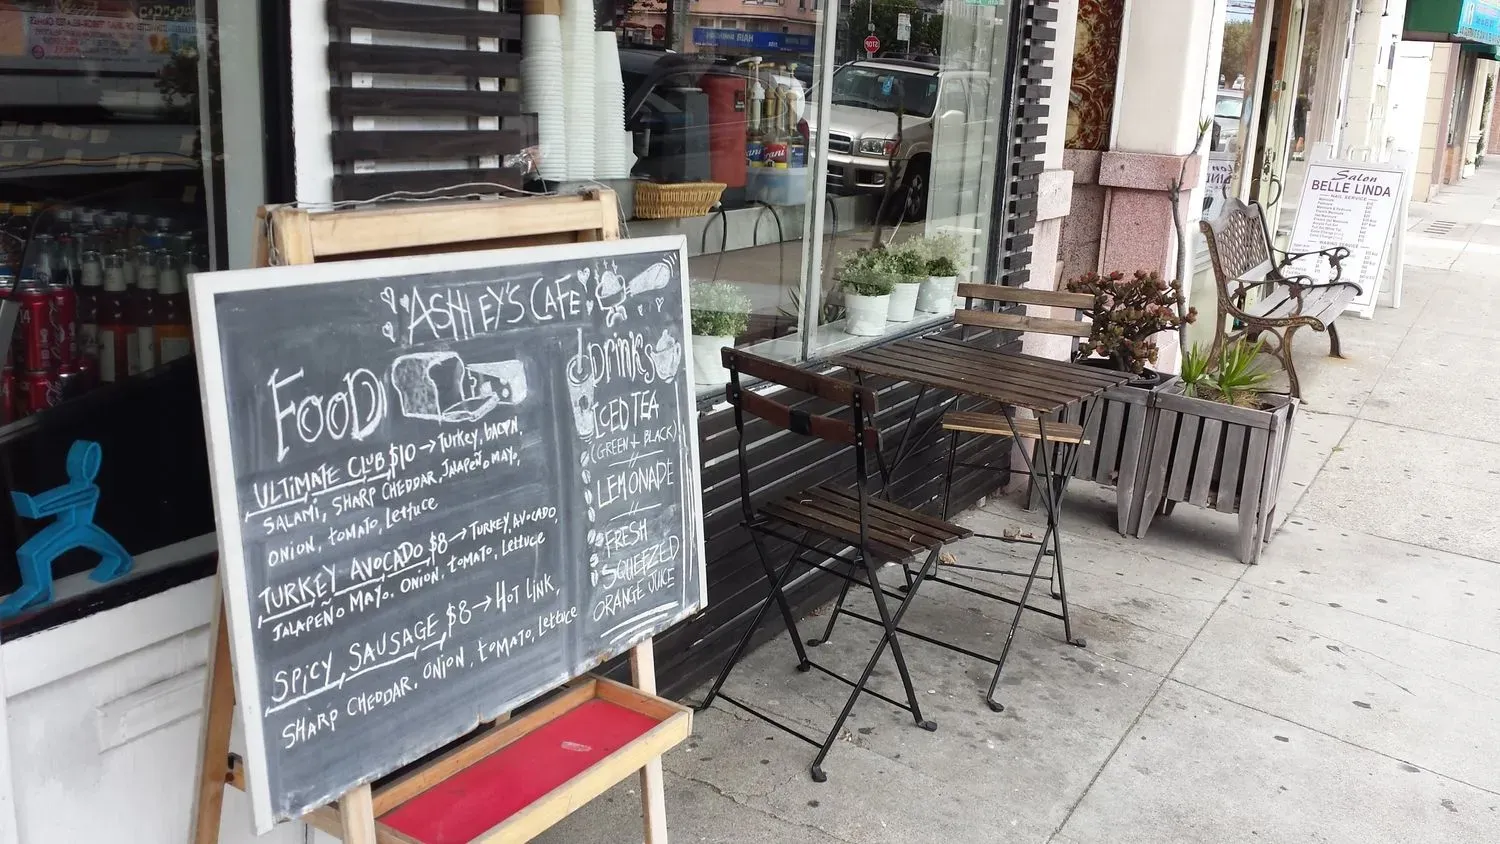 ASHLEY'S CAFE
FOOD
ULTIMATE CLUB $10 → TURKEY, BACON,
SALAMI, SHARP CHEDDAR, JALAPEÑO MAYO,
ONION, TOMATO, Lettuce
TURKEY AVOCADO $8 → TURKEY, AVOCADO,
JALAPEÑO MAYO, ONION, TOMATO, Lettuce
SPICY SAUSAGE $8 → HOT LINK,
SHARP CHEDDAR, ONION, TOMATO, Lettuce
DRINKS
ICED TEA
(GREEN + BLACK)
LEMONADE
FRESH
SQUEEZED
ORANGE JUICE
Salon
BELLE LINDA
NAIL SERVICE
WAXING SERVICE
STOP